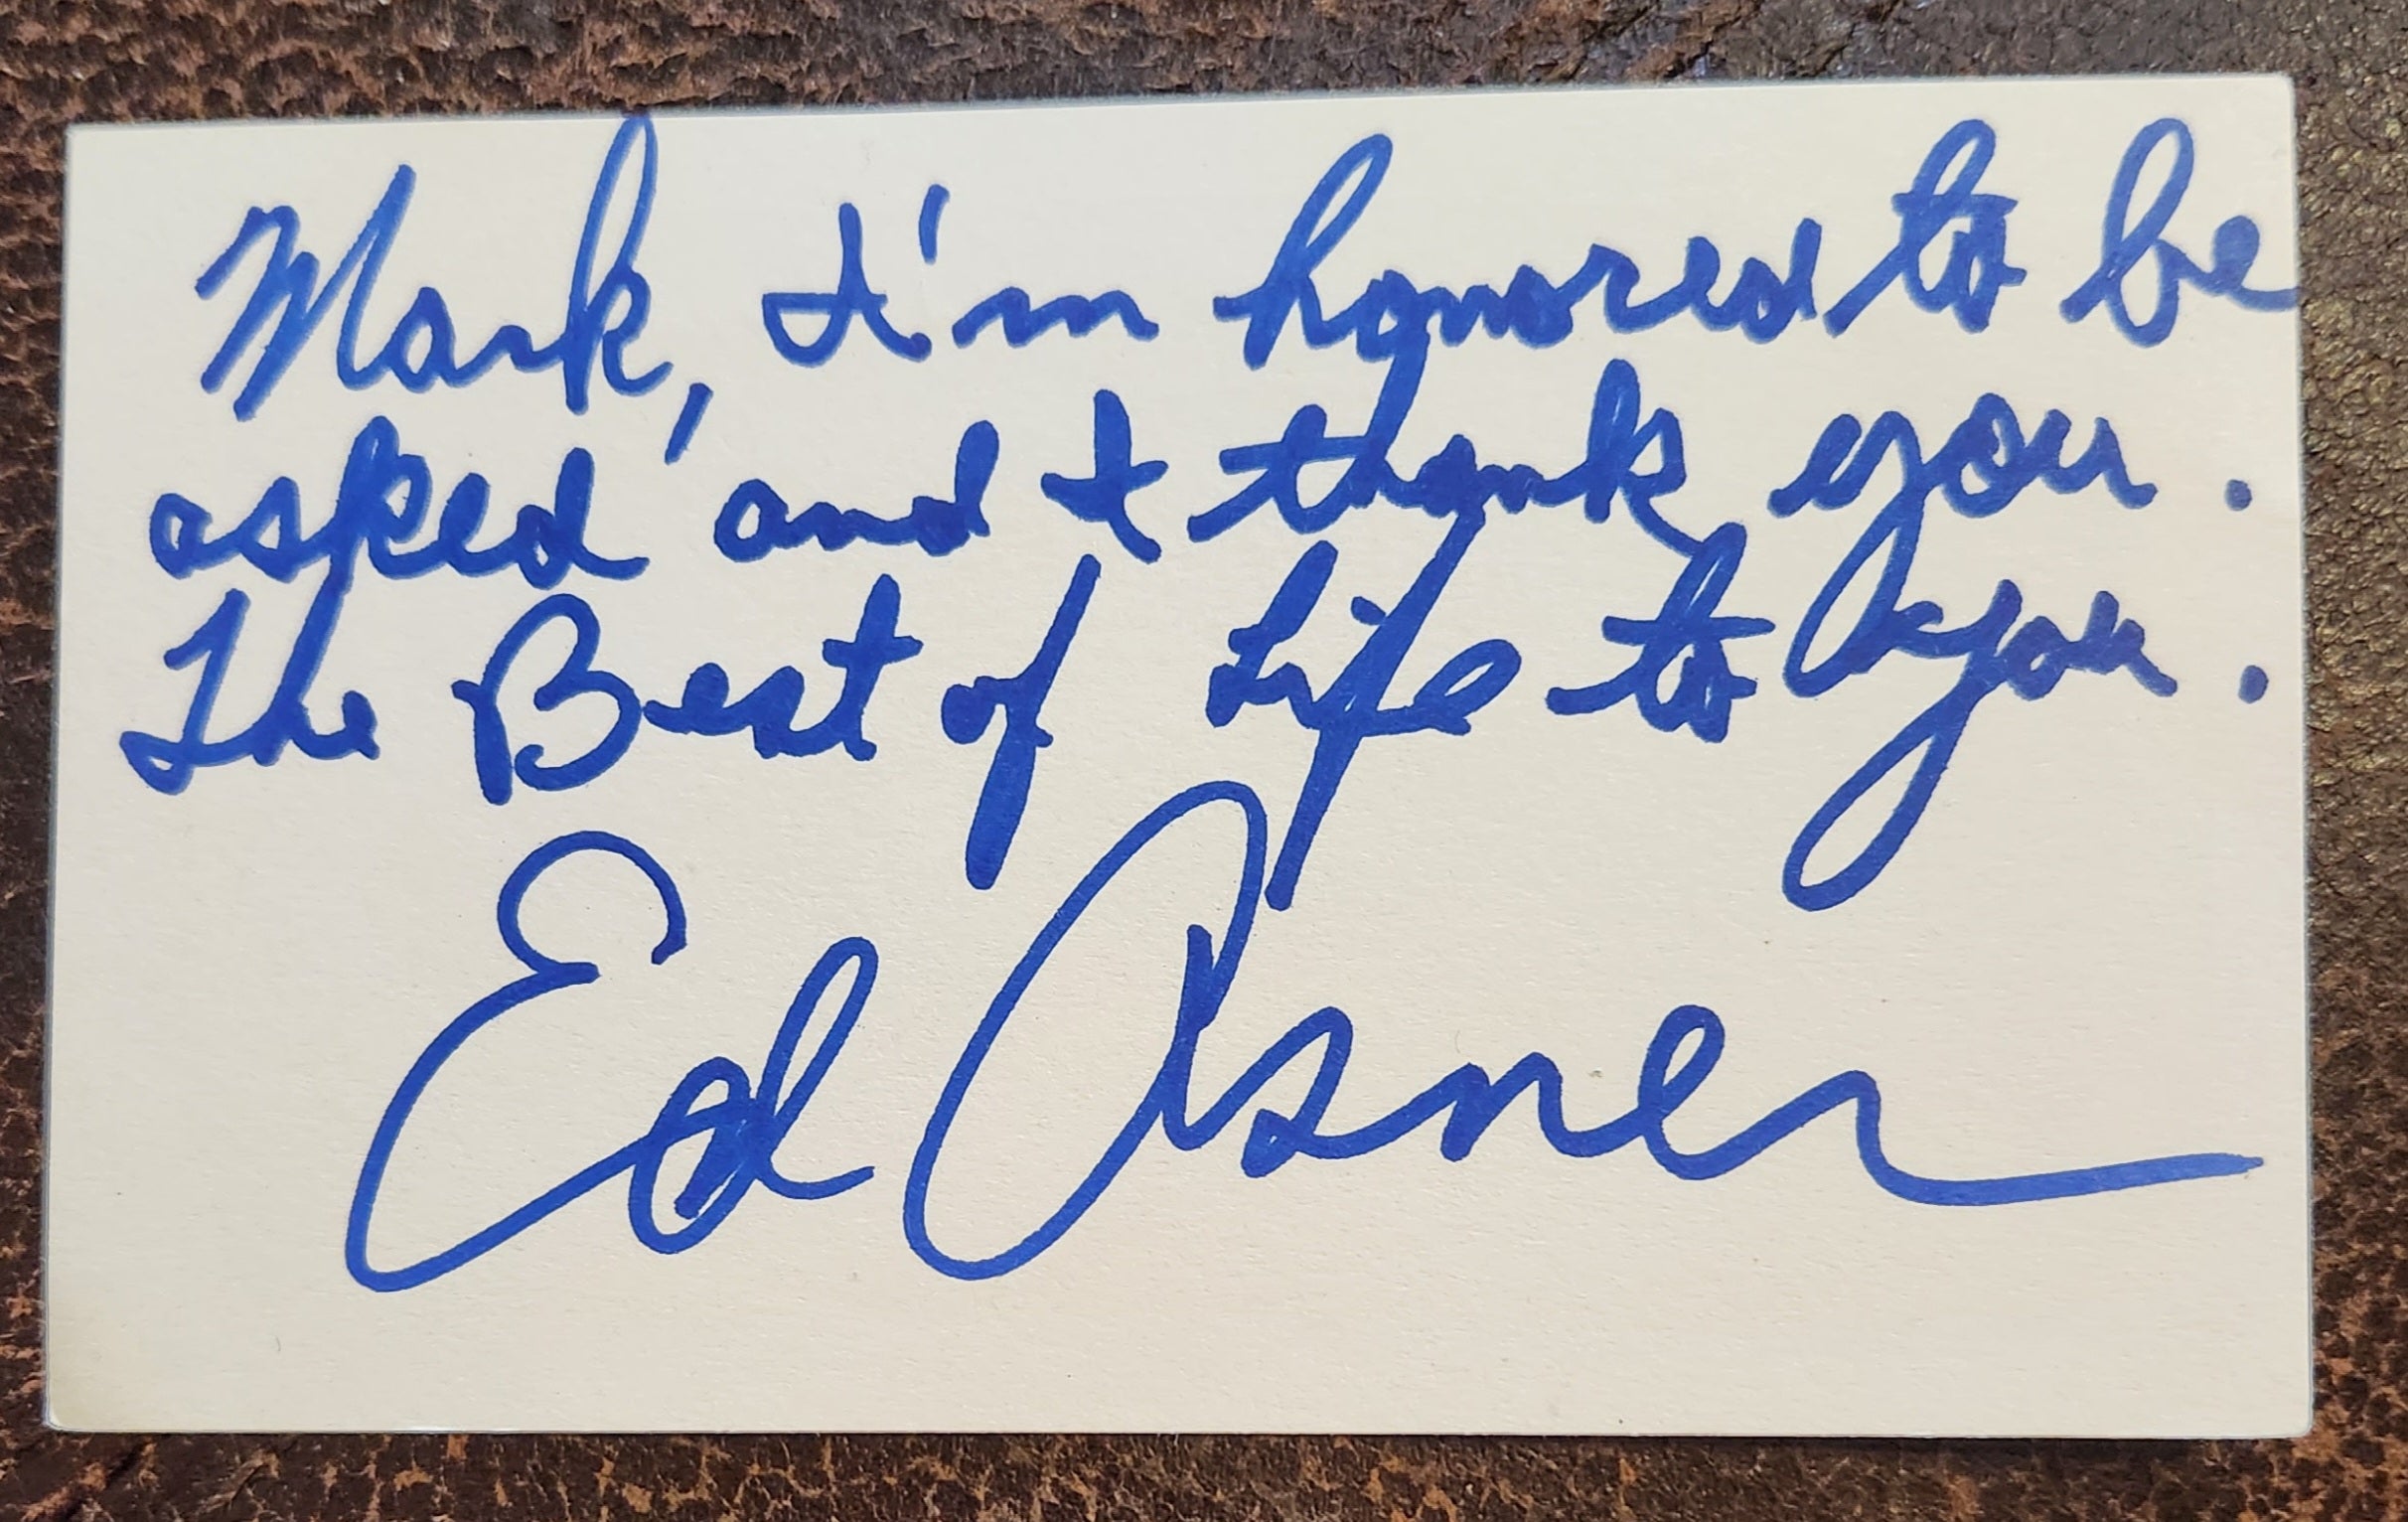 Mark, I'm honored to be
asked and I thank you.
The Best of Life to you.
Ed Asner